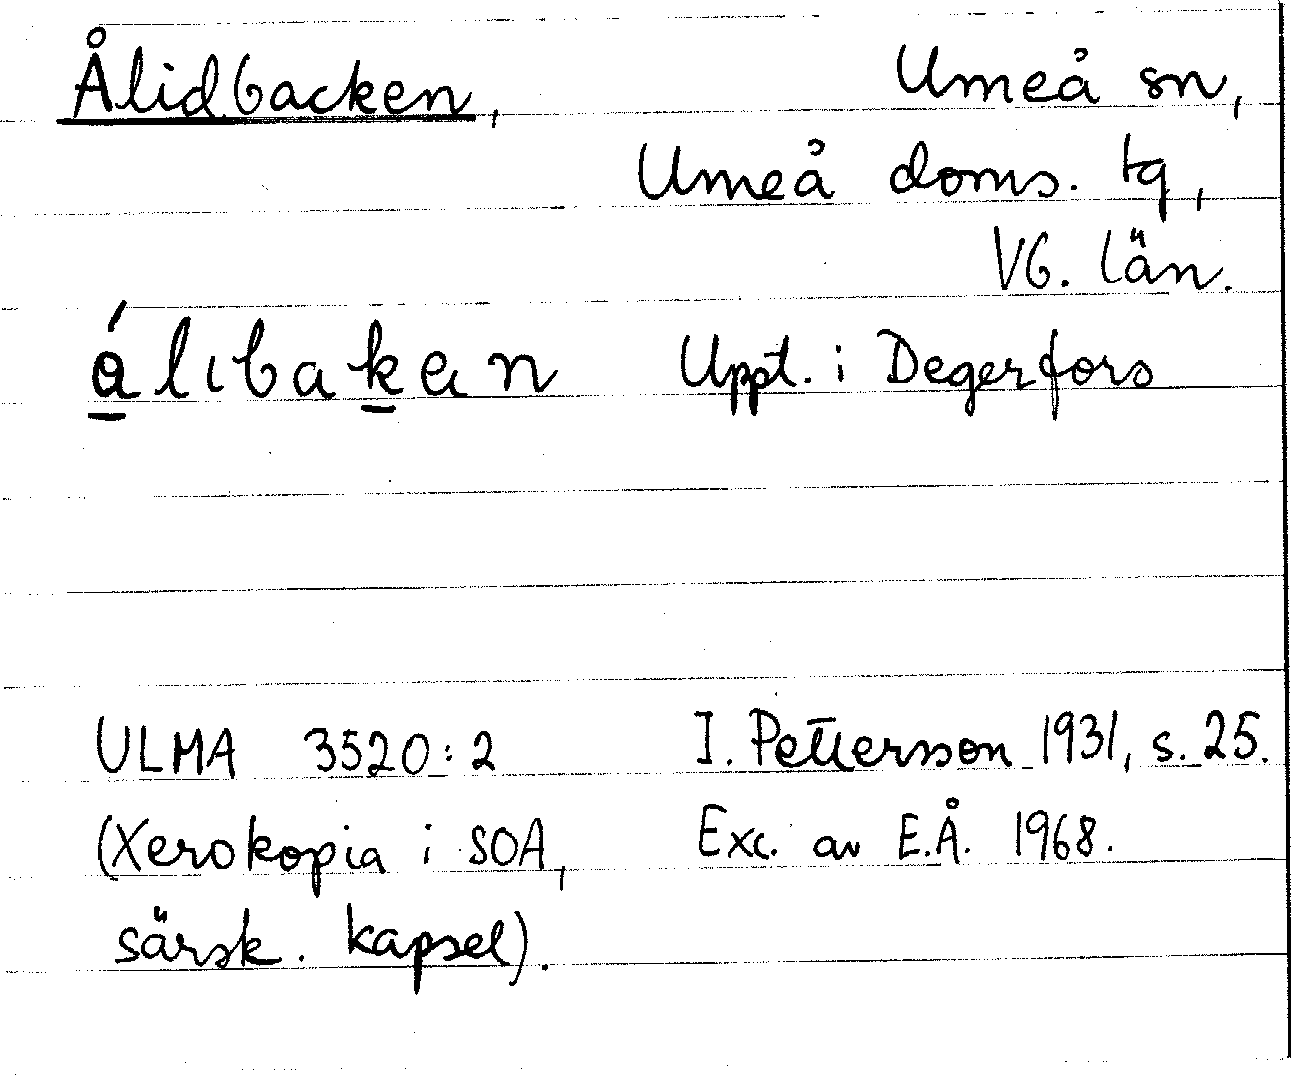 Ålidbacken, Umeå sn,
Umeå doms. tg,
VB. län.
álıbaken Uppt. i Degerfors
ULMA 3520:2 I. Pettersson 1931, s. 25.
(Xerokopia i SOA, Exc. av E.Å. 1968.
särsk. kapsel).